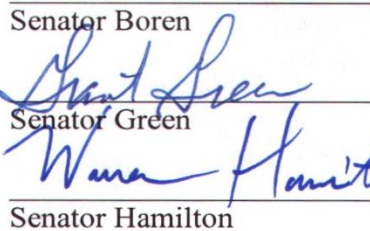 Senator Boren
Grant Green
Senator Green
Warren Hamilt
Senator Hamilton